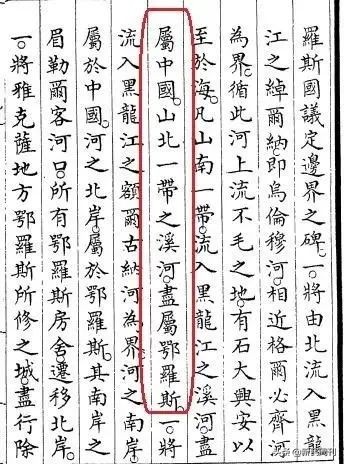 羅斯國議定邊界之碑。一將由北流入黑龍
江之綽爾納即烏倫穆河。相近格爾必齊河
為界。循此河上流不毛之地。有石大興安以
至於海。凡山南一帶。流入黑龍江之溪河。盡
屬中國。山北一帶之溪河。盡屬鄂羅斯。一將
流入黑龍江之額爾古納河為界。河之南岸。
屬於中國。河之北岸。屬於鄂羅斯。其南岸之
眉勒爾客河口。所有鄂羅斯房舍。遷移北岸。
一。將雅克薩地方鄂羅斯所修之城。盡行除